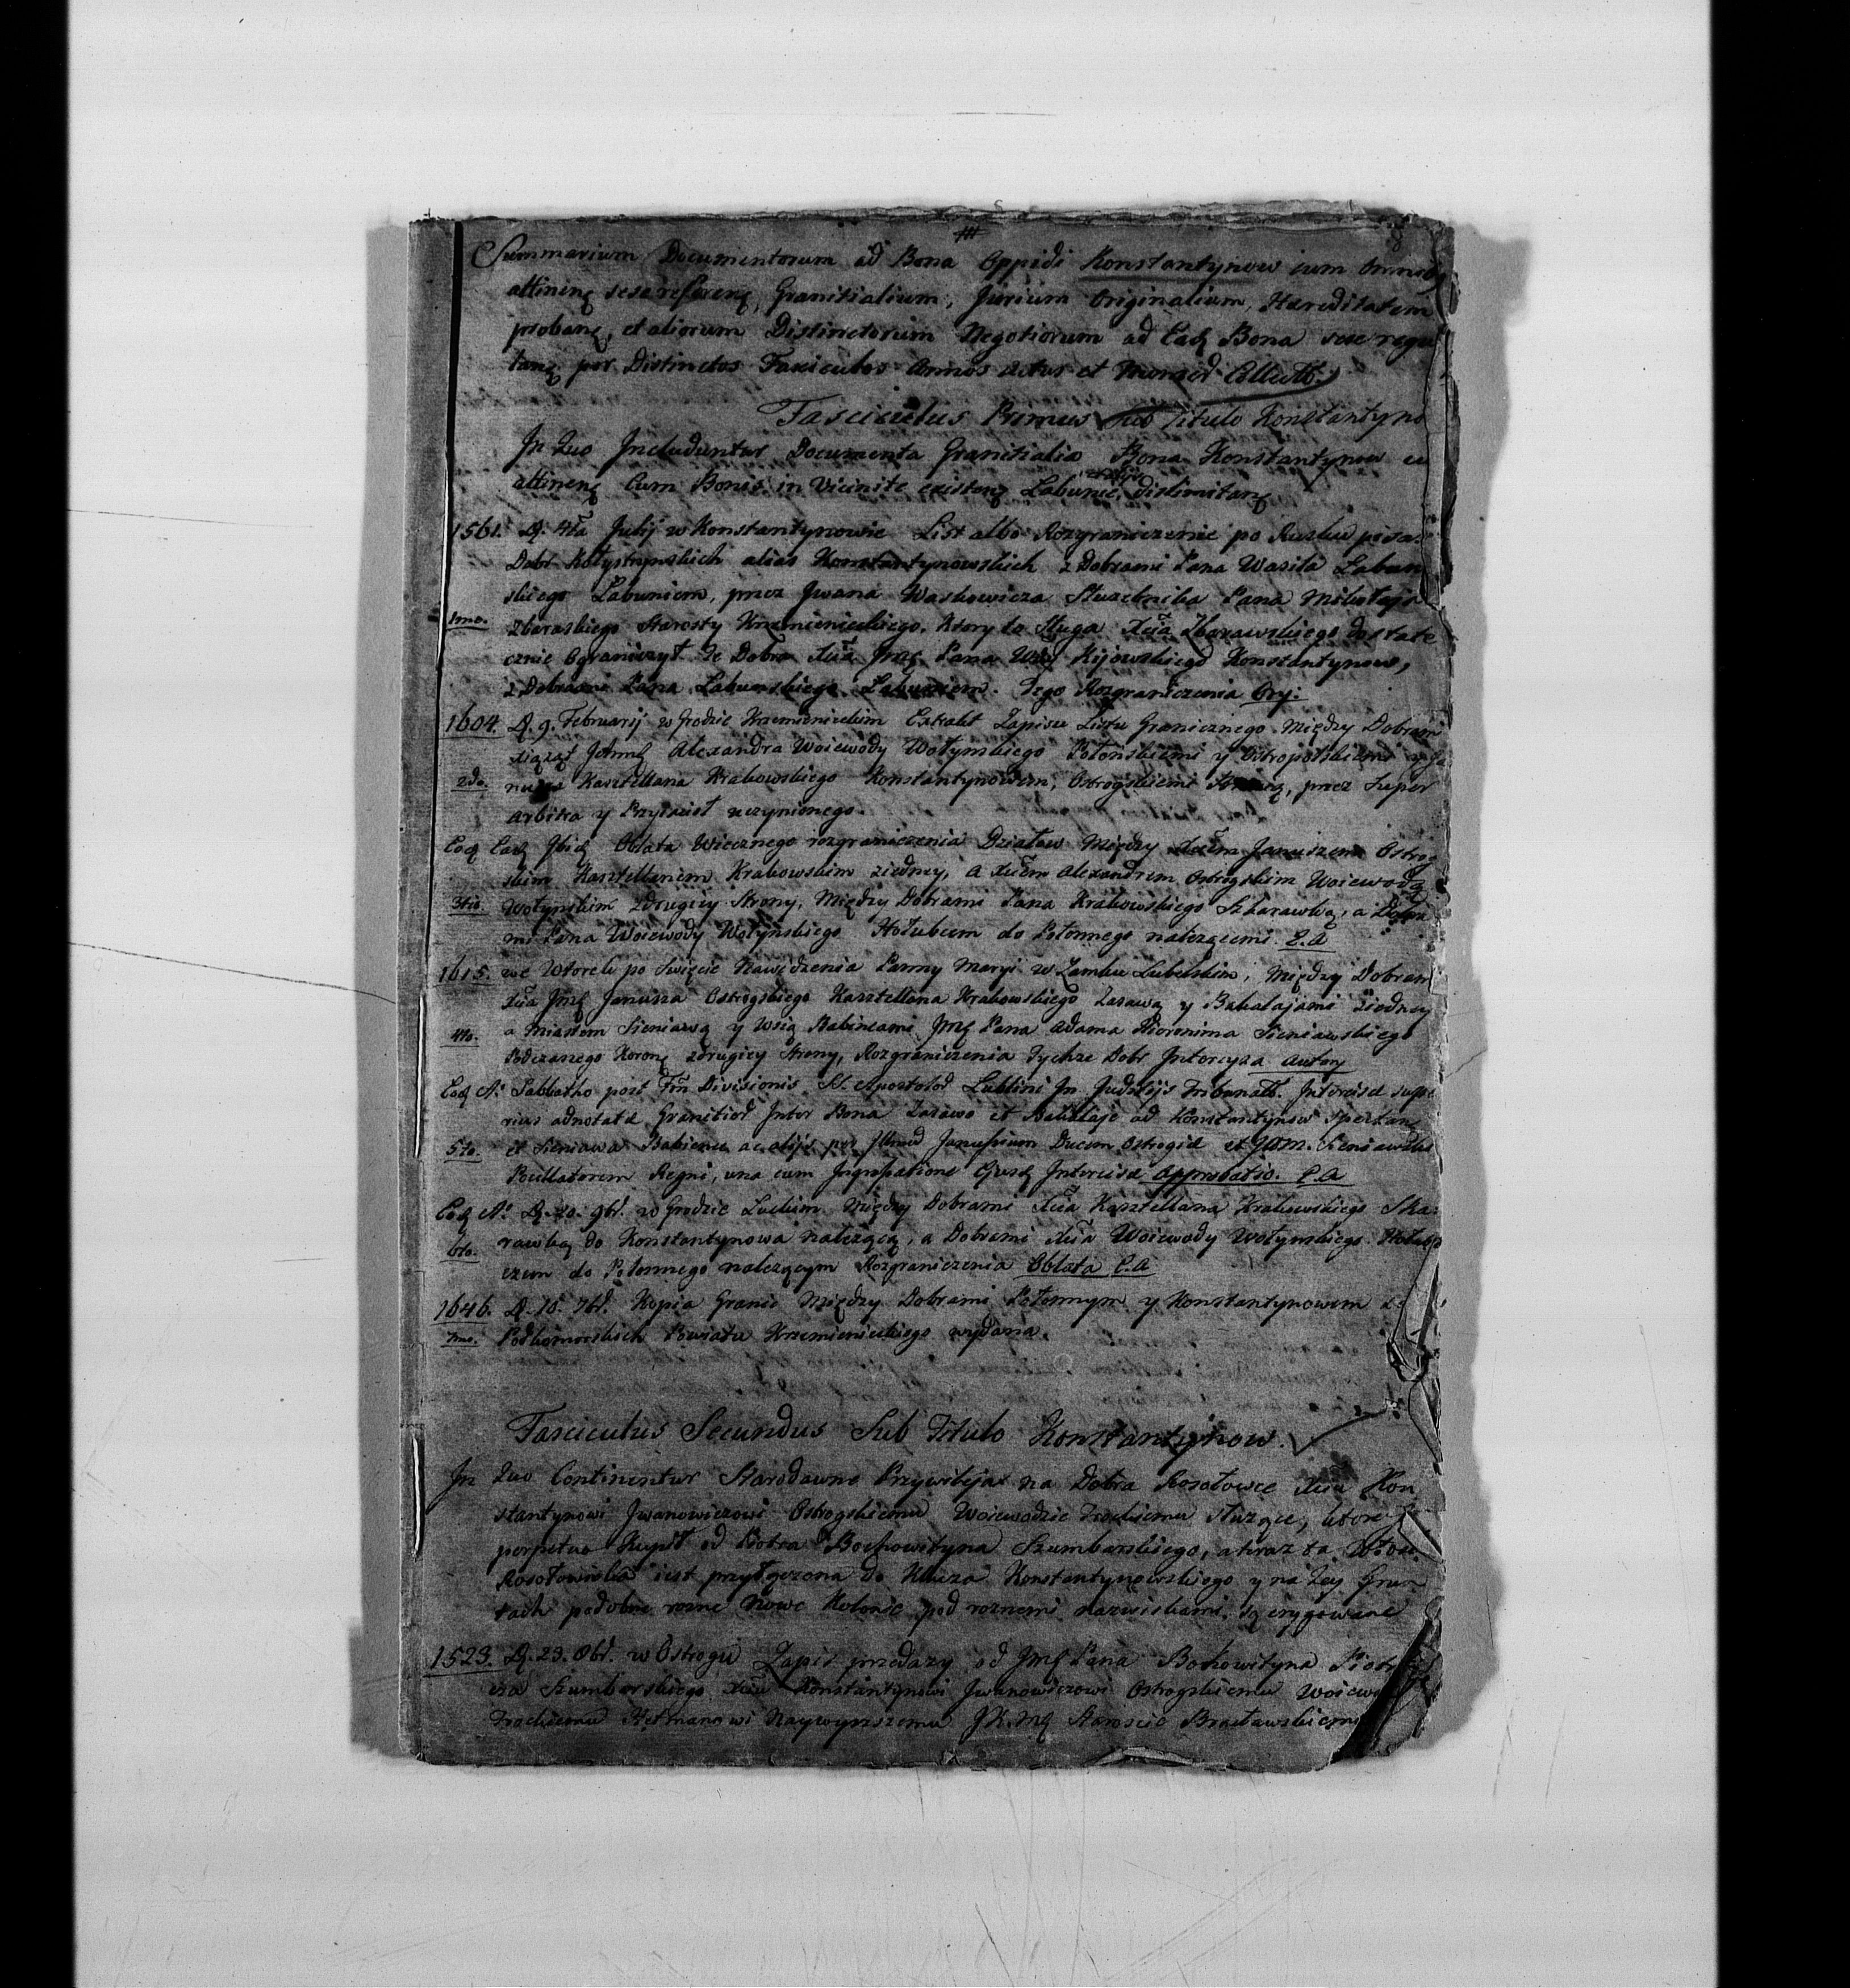 8
Summarium Documentorum ad Bona Oppidi Konstantynow cum Omniby
attinenς sese referenς, Granitialium, Jurium Originalium, Hæreditatem
probanς, et aliorum Distinctorum Negotiorum ad Eadς Bona sese regu
lanς per Distinctos Fasciculos Annos Actus et Collectt.
Fasciculus Primus sub Titulo Konstantyno
Jn Quo Jncluduntur Documenta Granitialia Bona Konstantynow cu
attinenς Cum Bonis in Vicinite existenς Labunie, dislimitanς
1561. D. 4ta Julij w Konstantynowie List albo Rozgraniczenie po Rusku pisa:
Dobr Kołystynskich alias Konstantynowskich z Dobrami Pana Wasila Labun
skiego Labuniem, przez Jwana Waskowicza Sluzebnika Pana Mikołaja
1mo. Zbaraskiego Starosty Krzemienieckiego, ktory to Sługa Xcia Zbarawskiego dostate
cznie Ograniczył te Dobra Xcia Jmς Pana Wdy Kijowskiego Konstantynow,
z Dobrami Pana Labunskiego Labuniem. Tego Rozgraniczenia Ory:
1604. D. 9. Februarij w Grodzie Krzemienieckim Extrakt Zapisu Listu Granicznego Między Dobrami
Xiążąt Jchmς Alexandra Woiewody Wołynskiego Połońskiemi y Ostropolskiemi
2do. Kasztellana Krakowskiego Konstantynowem, Ostrogskiemi przez Super
arbitra y Przyiacioł uczynionego.
Eodς Eadς Jbidς Oblata Wiecznego rozgraniczenia Działow Między Xciem Januszem Ostrog
skim Kasztellanem Krakowskim ziedney, a Xciem Alexandrem Ostrogskim Woiewodą
3tio. Wołynskim zdrugiey Strony, Między Dobrami Pana Krakowskiego Szkarawką, a Dobra
mi Pana Woiewody Wołyńskiego Hołubcem do Połonnego należącemi. E.A
1615. we Wtorek po Swięcie Nawiedzenia Panny Maryi w Zamku Lubelskim, Między Dobram
Xcia Jmς Janusza Ostrogskiego Kasztellana Krakowskiego Zasawą y Bahalajami ziedney
4to. a Miastem Sieniawą y Wsią Babincami Jmς Pana Adama Hieronima Sieniawskiego
Podczaszego Koronς zdrugiey Strony, Rozgraniczenia Tychże Dobr Jntercyza Auten
Eodς Aº Sabbatho post Fm Divisionis SS. Apostolod Lublini Jn Judiciis Tribunalt. Jntercisæ supe
rius adnotatæ Granitiod Jnter Bona Zasawa et Bahalaje ad Konstantynow spectanς
5to. et Sieniawa Babience ac alijs per Jllmud Janussium Ducem Ostrogiæ et GDM. Sieniawski
Pocillatorem Regni, una cum Jngrossatione Ejusdς Jntercisæ Approbatio. E.A
Eodς Aº D. 20. 9br. w Grodzie Luckim Między Dobrami Xcia Kasztellana Krakowskiego Ska:
6to. rawką do Konstantynowa należącą, a Dobrami Xcia Woiewody Wołynskiego Hołub
czem do Połonnego należącym Rozgraniczenia Oblata E.A
1646. D. 10. 7br. Kopia Granic Między Dobrami Połonnym y Konstantynowem z
7mo. Podkomorskich Powiatu Krzemienieckiego wydana.
Fasciculus Secundus Sub Titulo Konstantynow.
Jn Quo Continentur Starodawne Przywileja na Dobra Rosołowce Xciu Kon
stantynowi Jwanowiczowi Ostrogskiemu Woiewodzie Trockiemu służące, ktore
perpetuo Kupił od Piotra Bochowityna Szumbarskiego, a teraz ta Włosc
Rosołowiecka iest przyłączona do Klucza Konstantynowskiego y na Jey Grun
tach podobno rozne Nowe Kolonie pod roznemi nazwiskami są erygowane
1523. D. 23. 8br. w Ostrogu Zapis przedazy od Jmς Pana Bohowityna Piotr
cza Szumbarskiego Xciu Konstantynowi Jwanowiczowi Ostrogskiemu Woiewo
Trockiemu Hetmanowi Naywyzszemu JK.Mς Staroscie Bracławskiemu